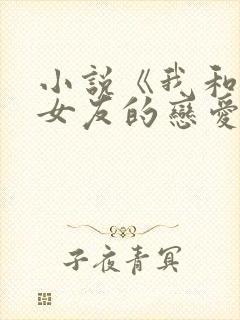 小說《我和
女友的戀愛
子夜青冥